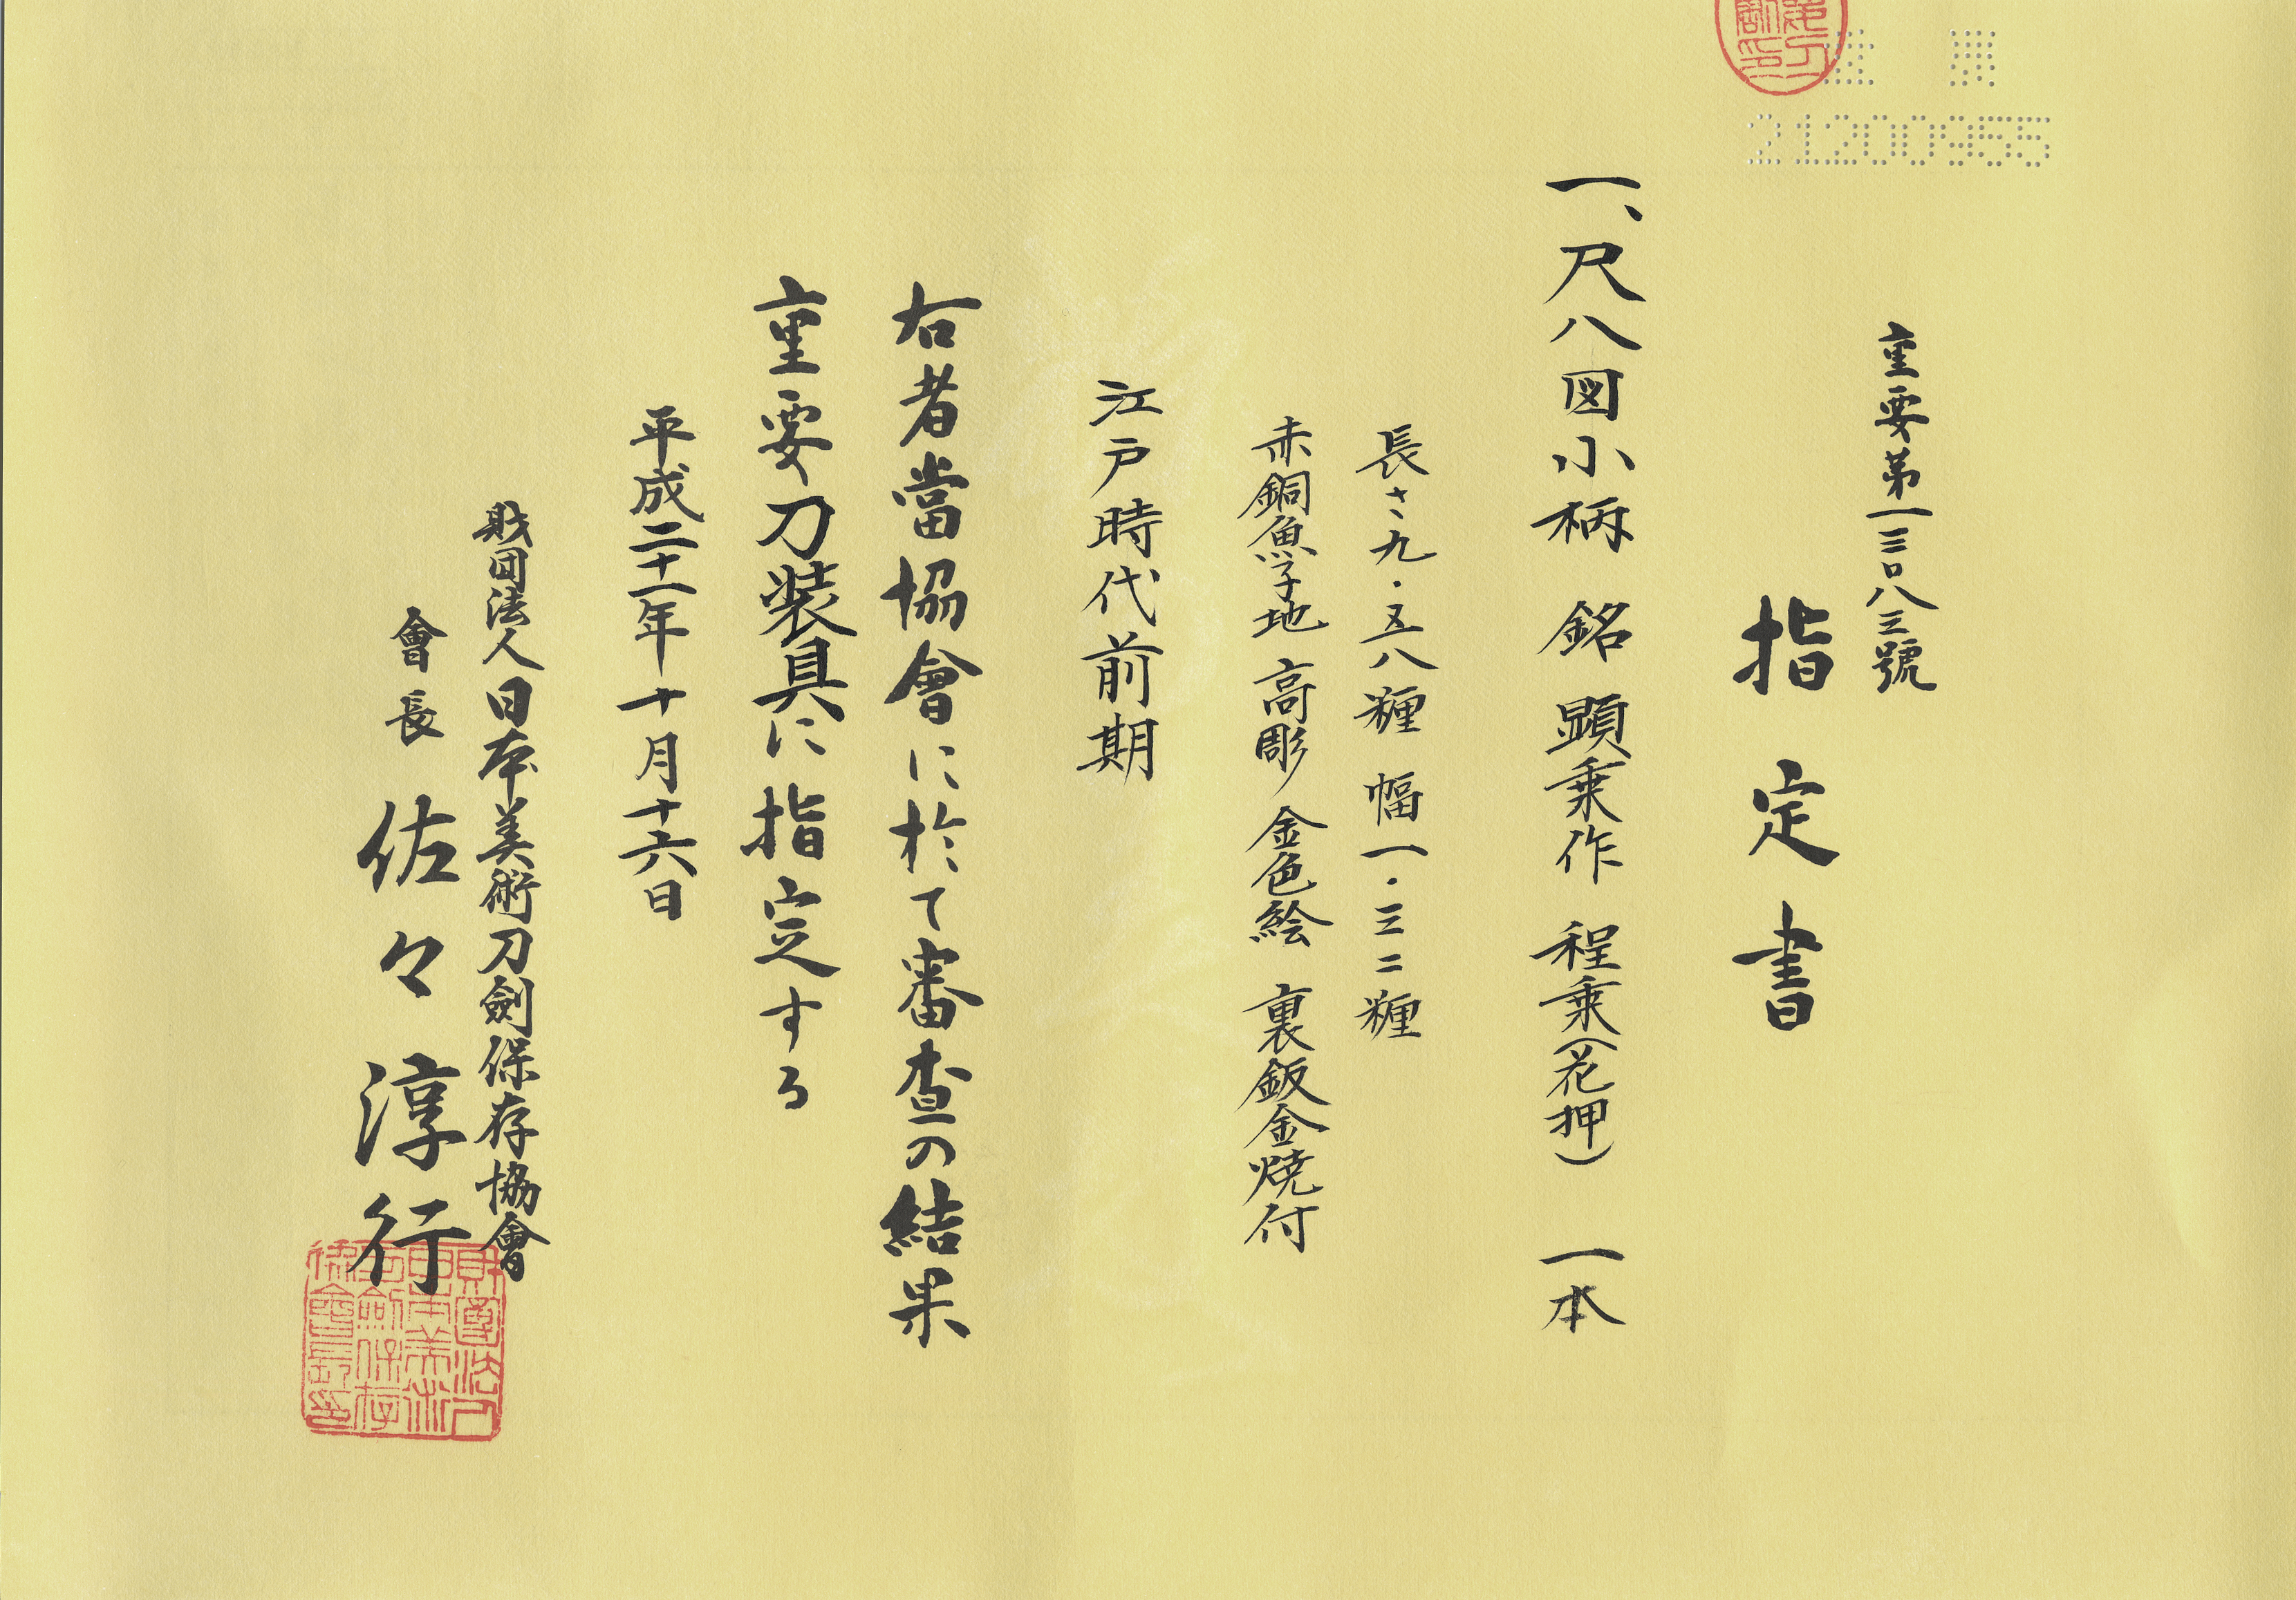 21200955
重要第一三〇八三號
指定書
一、尺八図小柄 銘 顕乗作 程乗(花押) 一本
長さ九・五八糎 幅一・三二糎
赤銅魚子地 高彫 金色絵 裏鈑金焼付
江戸時代前期
右者當協會に於て審査の結果
重要刀装具に指定する
平成二十一年十月十六日
財団法人日本美術刀劍保存協會
會長 佐々淳行
財團法人
日本美術
刀劍保存
協會長印